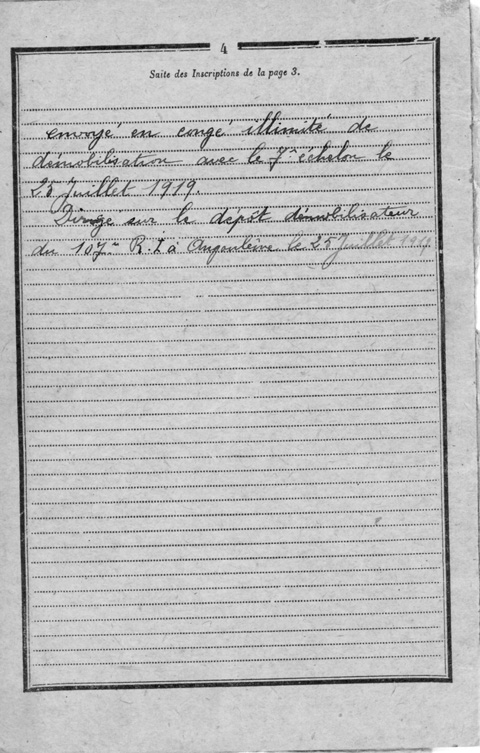 4
Suite des Inscriptions de la page 3.
envoyé en congé illimité de
démobilisation avec le 7e échelon le
25 Juillet 1919.
Dirigé sur le dépôt démobilisateur
du 107me R.I à Angoulême le 25 Juillet 1919